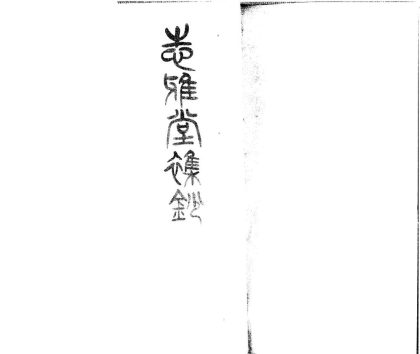 志雅堂襍鈔